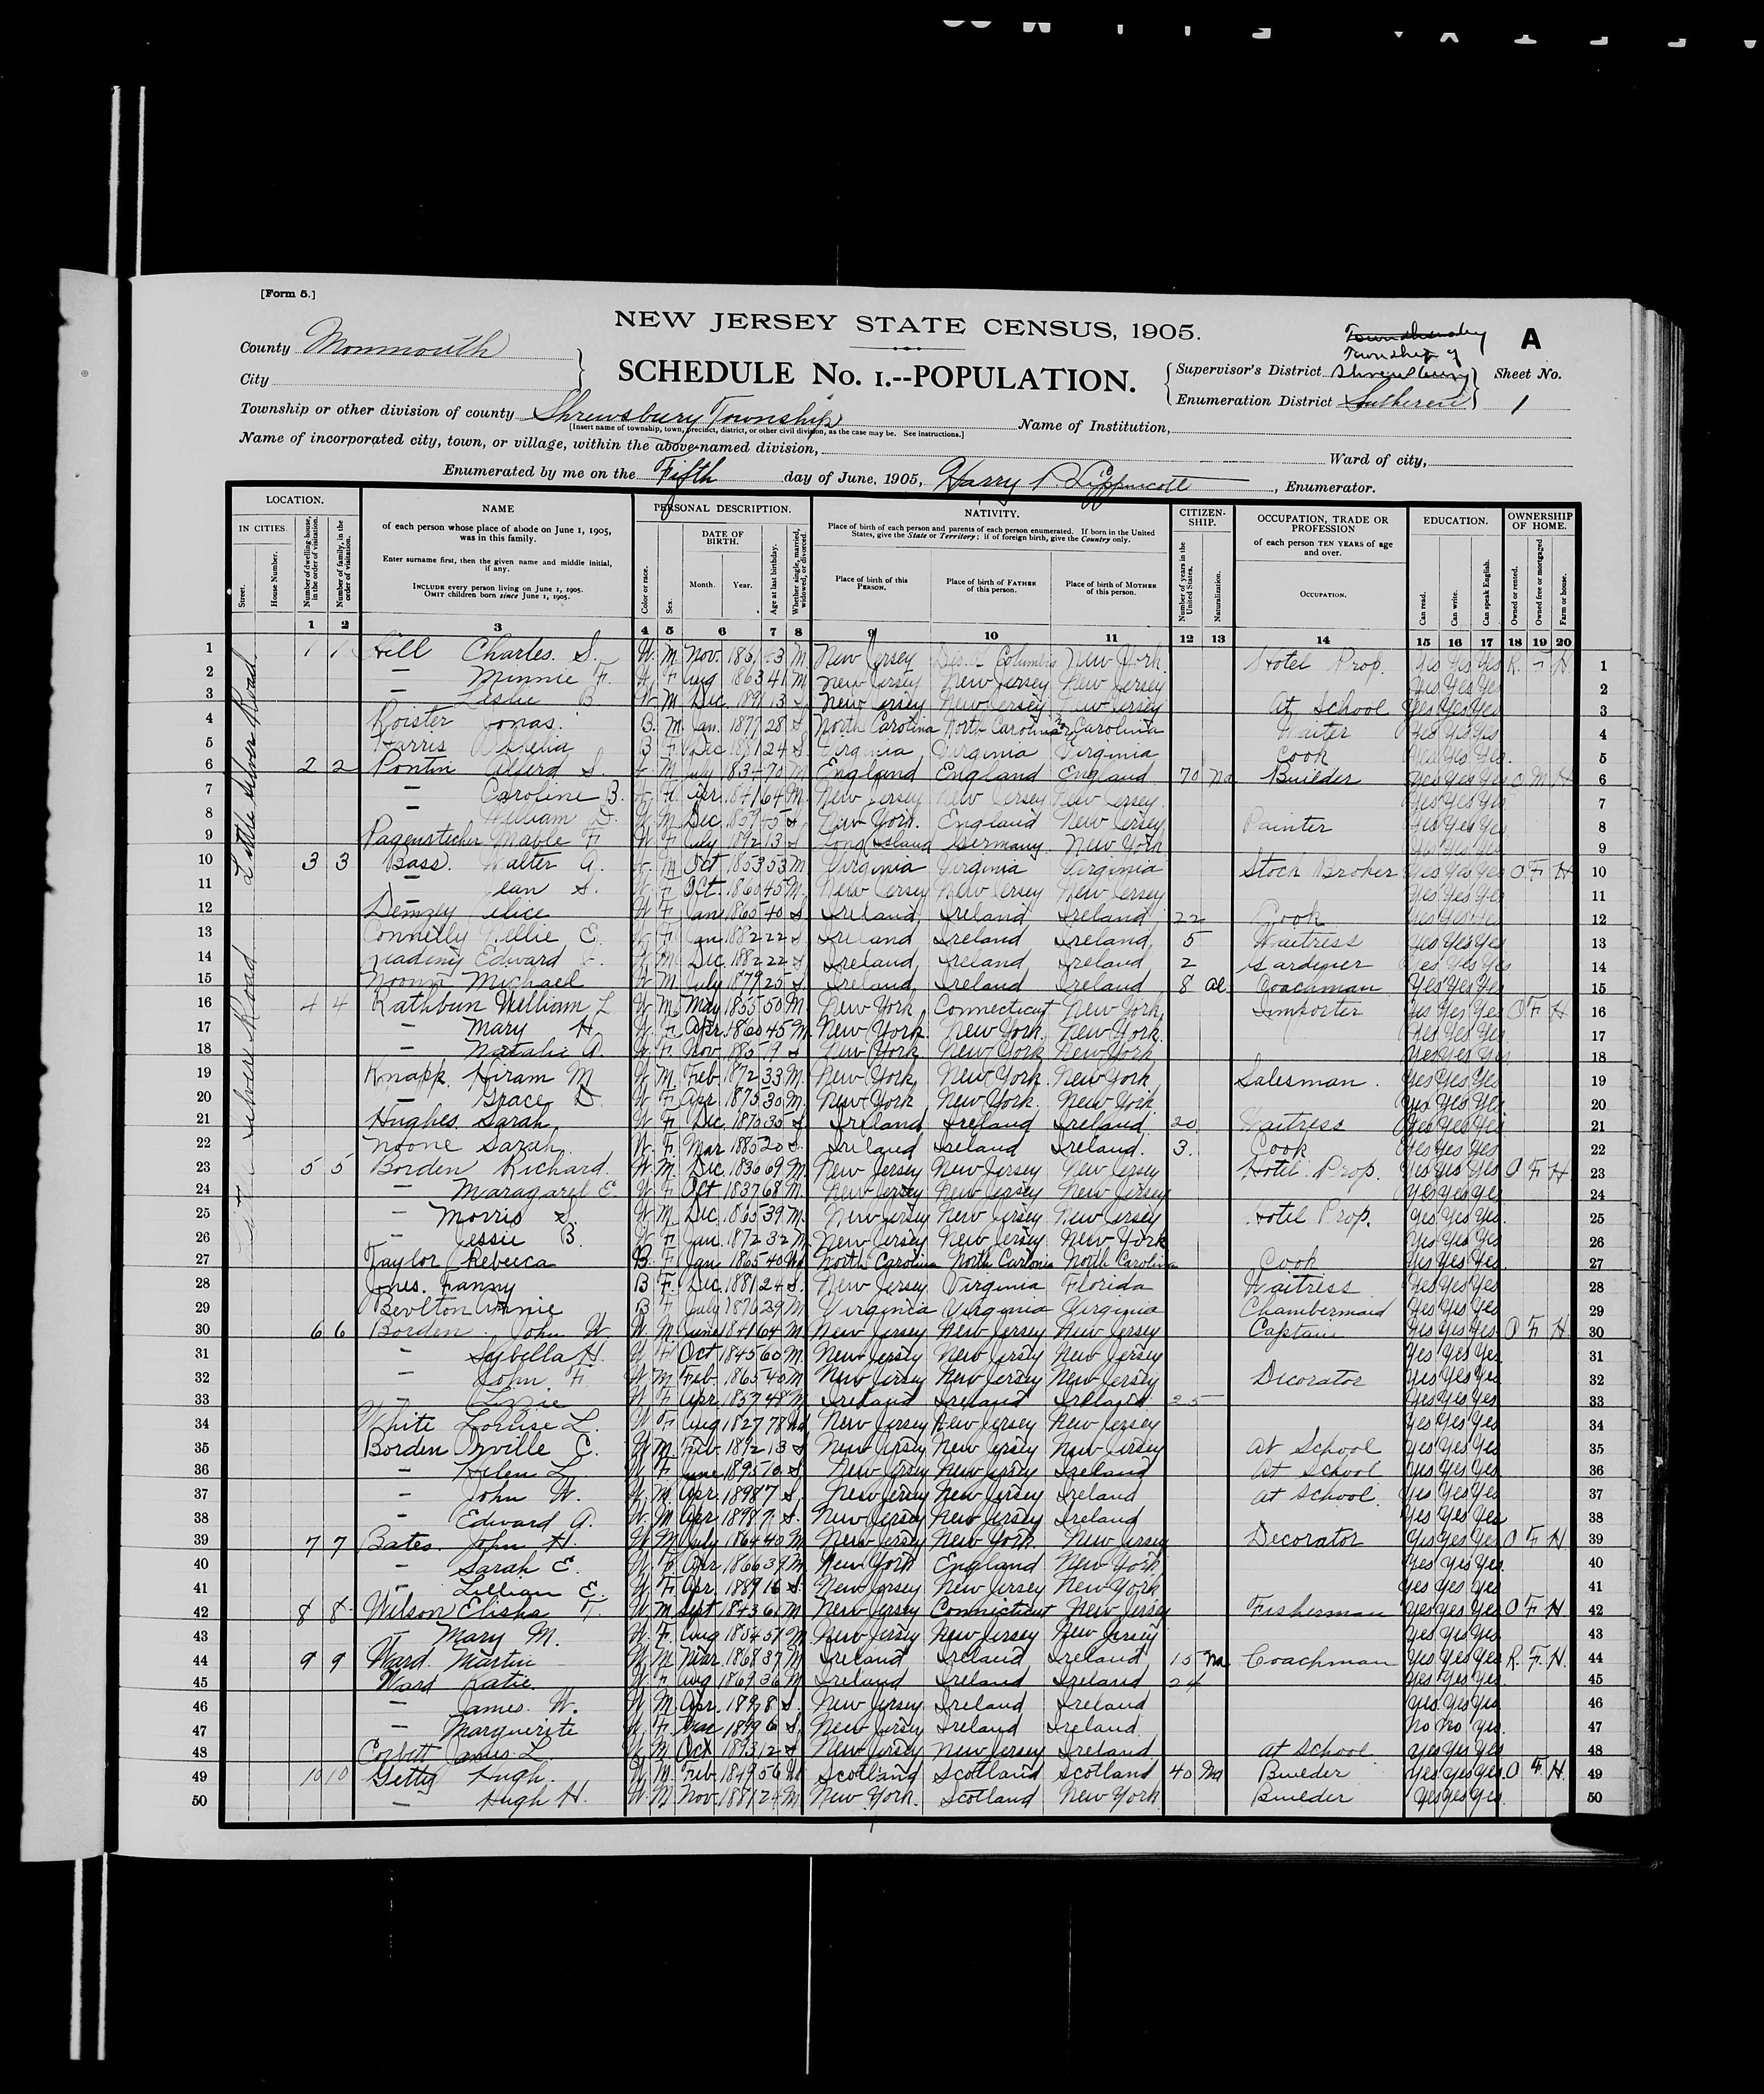 [Form 5.]
NEW JERSEY STATE CENSUS, 1905.
A
County Monmouth
Township of
City
SCHEDULE No. 1.--POPULATION.
Supervisor's District Shrewsbury
Sheet No.
Enumeration District
1
Township or other division of county Shrewsbury Township Name of Institution,
[Insert name of township, town, precinct, district, or other civil division, as the case may be. See instructions.]
Name of incorporated city, town, or village, within the above-named division, Ward of city,
Enumerated by me on the Fifth day of June, 1905, Harry P Lippincott, Enumerator.
LOCATION. NAME PERSONAL DESCRIPTION. NATIVITY. CITIZENSHIP. OCCUPATION, TRADE OR PROFESSION EDUCATION. OWNERSHIP OF HOME.
IN CITIES.
Street.
House Number.
Number of dwelling-house, in the order of visitation.
Number of family, in the order of visitation.
of each person whose place of abode on June 1, 1905, was in this family.
Enter surname first, then the given name and middle initial, if any.
INCLUDE every person living on June 1, 1905.
OMIT children born since June 1, 1905.
Color or race.
Sex.
DATE OF BIRTH.
Month. Year.
Age at last birthday.
Whether single, married, widowed, or divorced.
Place of birth of each person and parents of each person enumerated. If born in the United States, give the State or Territory; if of foreign birth, give the Country only.
Place of birth of this PERSON.
Place of birth of FATHER of this person.
Place of birth of MOTHER of this person.
Number of years in the United States.
Naturalization.
of each person TEN YEARS of age and over.
OCCUPATION.
Can read.
Can write.
Can speak English.
Owned or rented.
Owned free or mortgaged
Farm or house.
1 2 3 4 5 6 7 8 9 10 11 12 13 14 15 16 17 18 19 20
Little Silver Road
1 1 1 Hill Charles. S. W. M. Nov. 1861 M New Jersey Dis. of Columbia New York. Hotel Prop. Yes Yes Yes R. H. 1
2 — Minnie F. W. F. Aug 1863 41 M New Jersey New Jersey New Jersey Yes Yes Yes 2
3 — Leslie B W. M Dec. 1891 13 S New Jersey New Jersey New Jersey At School Yes Yes Yes 3
4 Roister Jonas. B. M. Jan. 1877 28 S North Carolina North Carolina No Carolina Waiter Yes Yes Yes 4
5 Harris B F Dec 1881 24 S. Virginia Virginia Virginia Cook Yes Yes Yes. 5
6 2 2 Pontin Alferd S. W M July 1834 70 M England England England 70 Na Builder Yes Yes Yes O M H 6
7 — Caroline B. W. F. Apr. 1841 64 M. New Jersey New Jersey New Jersey. Yes Yes Yes 7
8 — William D. W. M Dec. 1859 45 S New York. England New Jersey Painter Yes Yes Yes 8
9 Pagenstecher Mable F. W F July 1892 13 S Long Island Germany. New York Yes Yes Yes 9
10 3 3 Bass. Walter A. W. M Oct 1853 53 M Virginia Virginia Virginia Stock Broker Yes Yes Yes O F H 10
11 — Jean S. W F Oct. 1860 45 M. New Jersey New Jersey New Jersey Yes Yes Yes 11
12 Demzey Alice W F Jan 1865 40 S Ireland Ireland Ireland 22 Cook Yes Yes Yes 12
13 Connelly Nellie E. W F Jan 1882 22 S Ireland Ireland Ireland 5 Waitress Yes Yes Yes 13
14 Edward W M Dec. 1882 22 S Ireland Ireland Ireland 2 Gardener Yes Yes Yes 14
15 Michael W M. July 1879 25 S Ireland Ireland Ireland 8 Al Coachman Yes Yes Yes 15
16 4 4 Rathbun William L W M. May 1855 50 M. New York Connecticut New York Importer Yes Yes Yes O F H 16
17 — Mary H. W. F. Apr. 1860 45 M New York. New York. New York. Yes Yes Yes 17
18 — Natalie A. W. F. Nov. 1885 19 S New York New York New York Yes Yes Yes 18
19 Knapp. Hiram M W. M. Feb. 1872 33 M. New York New York. New York Salesman. Yes Yes Yes 19
20 — Grace D. W F. Apr. 1875 30 M. New York New York. New York Yes Yes Yes 20
21 Hughes. Sarah W F. Dec. 1870 35 S Ireland Ireland Ireland. 20 Waitress Yes Yes Yes 21
22 Noone Sarah W. F. Mar 1885 20 S. Ireland Ireland Ireland. 3. Cook Yes Yes Yes 22
23 5 5 Borden Richard. W. M. Dec. 1836 69 M. New Jersey New Jersey New Jersey Hotel Prop. Yes Yes Yes O F H. 23
24 — Maragaret E. W F Oct 1837 68 M. New Jersey New Jersey New Jersey Yes Yes Yes 24
25 — Morris S. W M. Dec. 1865 39 M. New Jersey New Jersey New Jersey Hotel Prop. Yes Yes Yes. 25
26 — Jessie B. W F Jan. 1872 32 M New Jersey New Jersey. New York Yes Yes Yes. 26
27 Taylor Rebecca B. F. Jan 1865 40 Wd North Carolina North Carlonia North Carolina Cook Yes Yes Yes. 27
28 Jones. Fanny B F. Dec. 1881 24 S. New Jersey Virginia Florida Waitress Yes Yes Yes 28
29 Bevlton Annie B F July 1876 29 M Virginia Virginia Virginia Chambermaid Yes Yes Yes 29
30 6 6 Borden. John W. W. M. June 1841 64 M New Jersey New Jersey New Jersey Captain Yes Yes Yes O F H 30
31 — Sybella H. W F Oct 1845 60 M. New Jersey New Jersey New Jersey Yes Yes Yes. 31
32 — John F. W M. Feb. 1865 40 M New Jersey New Jersey New Jersey Decorator Yes Yes Yes 32
33 — Lizzie W F Apr. 1857 48 M Ireland Ireland Ireland 25 Yes Yes Yes 33
34 White Louise L. W F. Aug 1827 78 Wd New Jersey New Jersey New Jersey Yes Yes Yes 34
35 Borden Orville C. W M. Feb. 1892 13 S New Jersey New Jersey New Jersey At School Yes Yes Yes 35
36 — Helen L. W. F June 1895 10 S New Jersey New Jersey Ireland At School Yes Yes Yes. 36
37 — John W. W. M. Apr. 1898 7 S New Jersey New Jersey Ireland At School. Yes Yes Yes. 37
38 — Edward A. W. M Apr. 1898 7 S. New Jersey New Jersey Ireland Yes Yes Yes 38
39 7 7 Bates. John H. W M July 1864 40 M New Jersey New York. New Jersey Decorator Yes Yes Yes O F H. 39
40 — Sarah E. W. F. Apr 1866 39 M New York England New York Yes Yes Yes. 40
41 — Lillian E. W F. Apr. 1889 16 S. New Jersey New Jersey New York Yes Yes Yes. 41
42 8 8 Wilson Elisha T. W. M Sept 1843 61 M New Jersey Connecticut New Jersey Fisherman Yes Yes Yes O F H 42
43 — Mary M. W. F. Aug 1854 51 M New Jersey New Jersey New Jersey Yes Yes Yes. 43
44 9 9 Ward. Martin W M Mar. 1868 37 M Ireland Ireland Ireland 15 Na Coachman Yes Yes Yes R. F. H. 44
45 Ward Katie. W F Aug 1869 36 M Ireland Ireland Ireland 24 Yes Yes Yes. 45
46 — James. W. W M. Apr. 1897 8 S. New Jersey Ireland Ireland Yes Yes Yes 46
47 — Marguerite W. F. Mar 1899 6 S. New Jersey Ireland Ireland. No No Yes. 47
48 Corbett James. L. W M Oct 1893 12 S New Jersey New Jersey Ireland At School. Yes Yes Yes 48
49 10 10 Getty Hugh. W M. Feb. 1849 56 Wd Scotland Scotland Scotland 40 Na Builder Yes Yes Yes O F H. 49
50 — Hugh H. W M Nov. 1881 24 M New York. Scotland New York. Builder Yes Yes Yes. 50